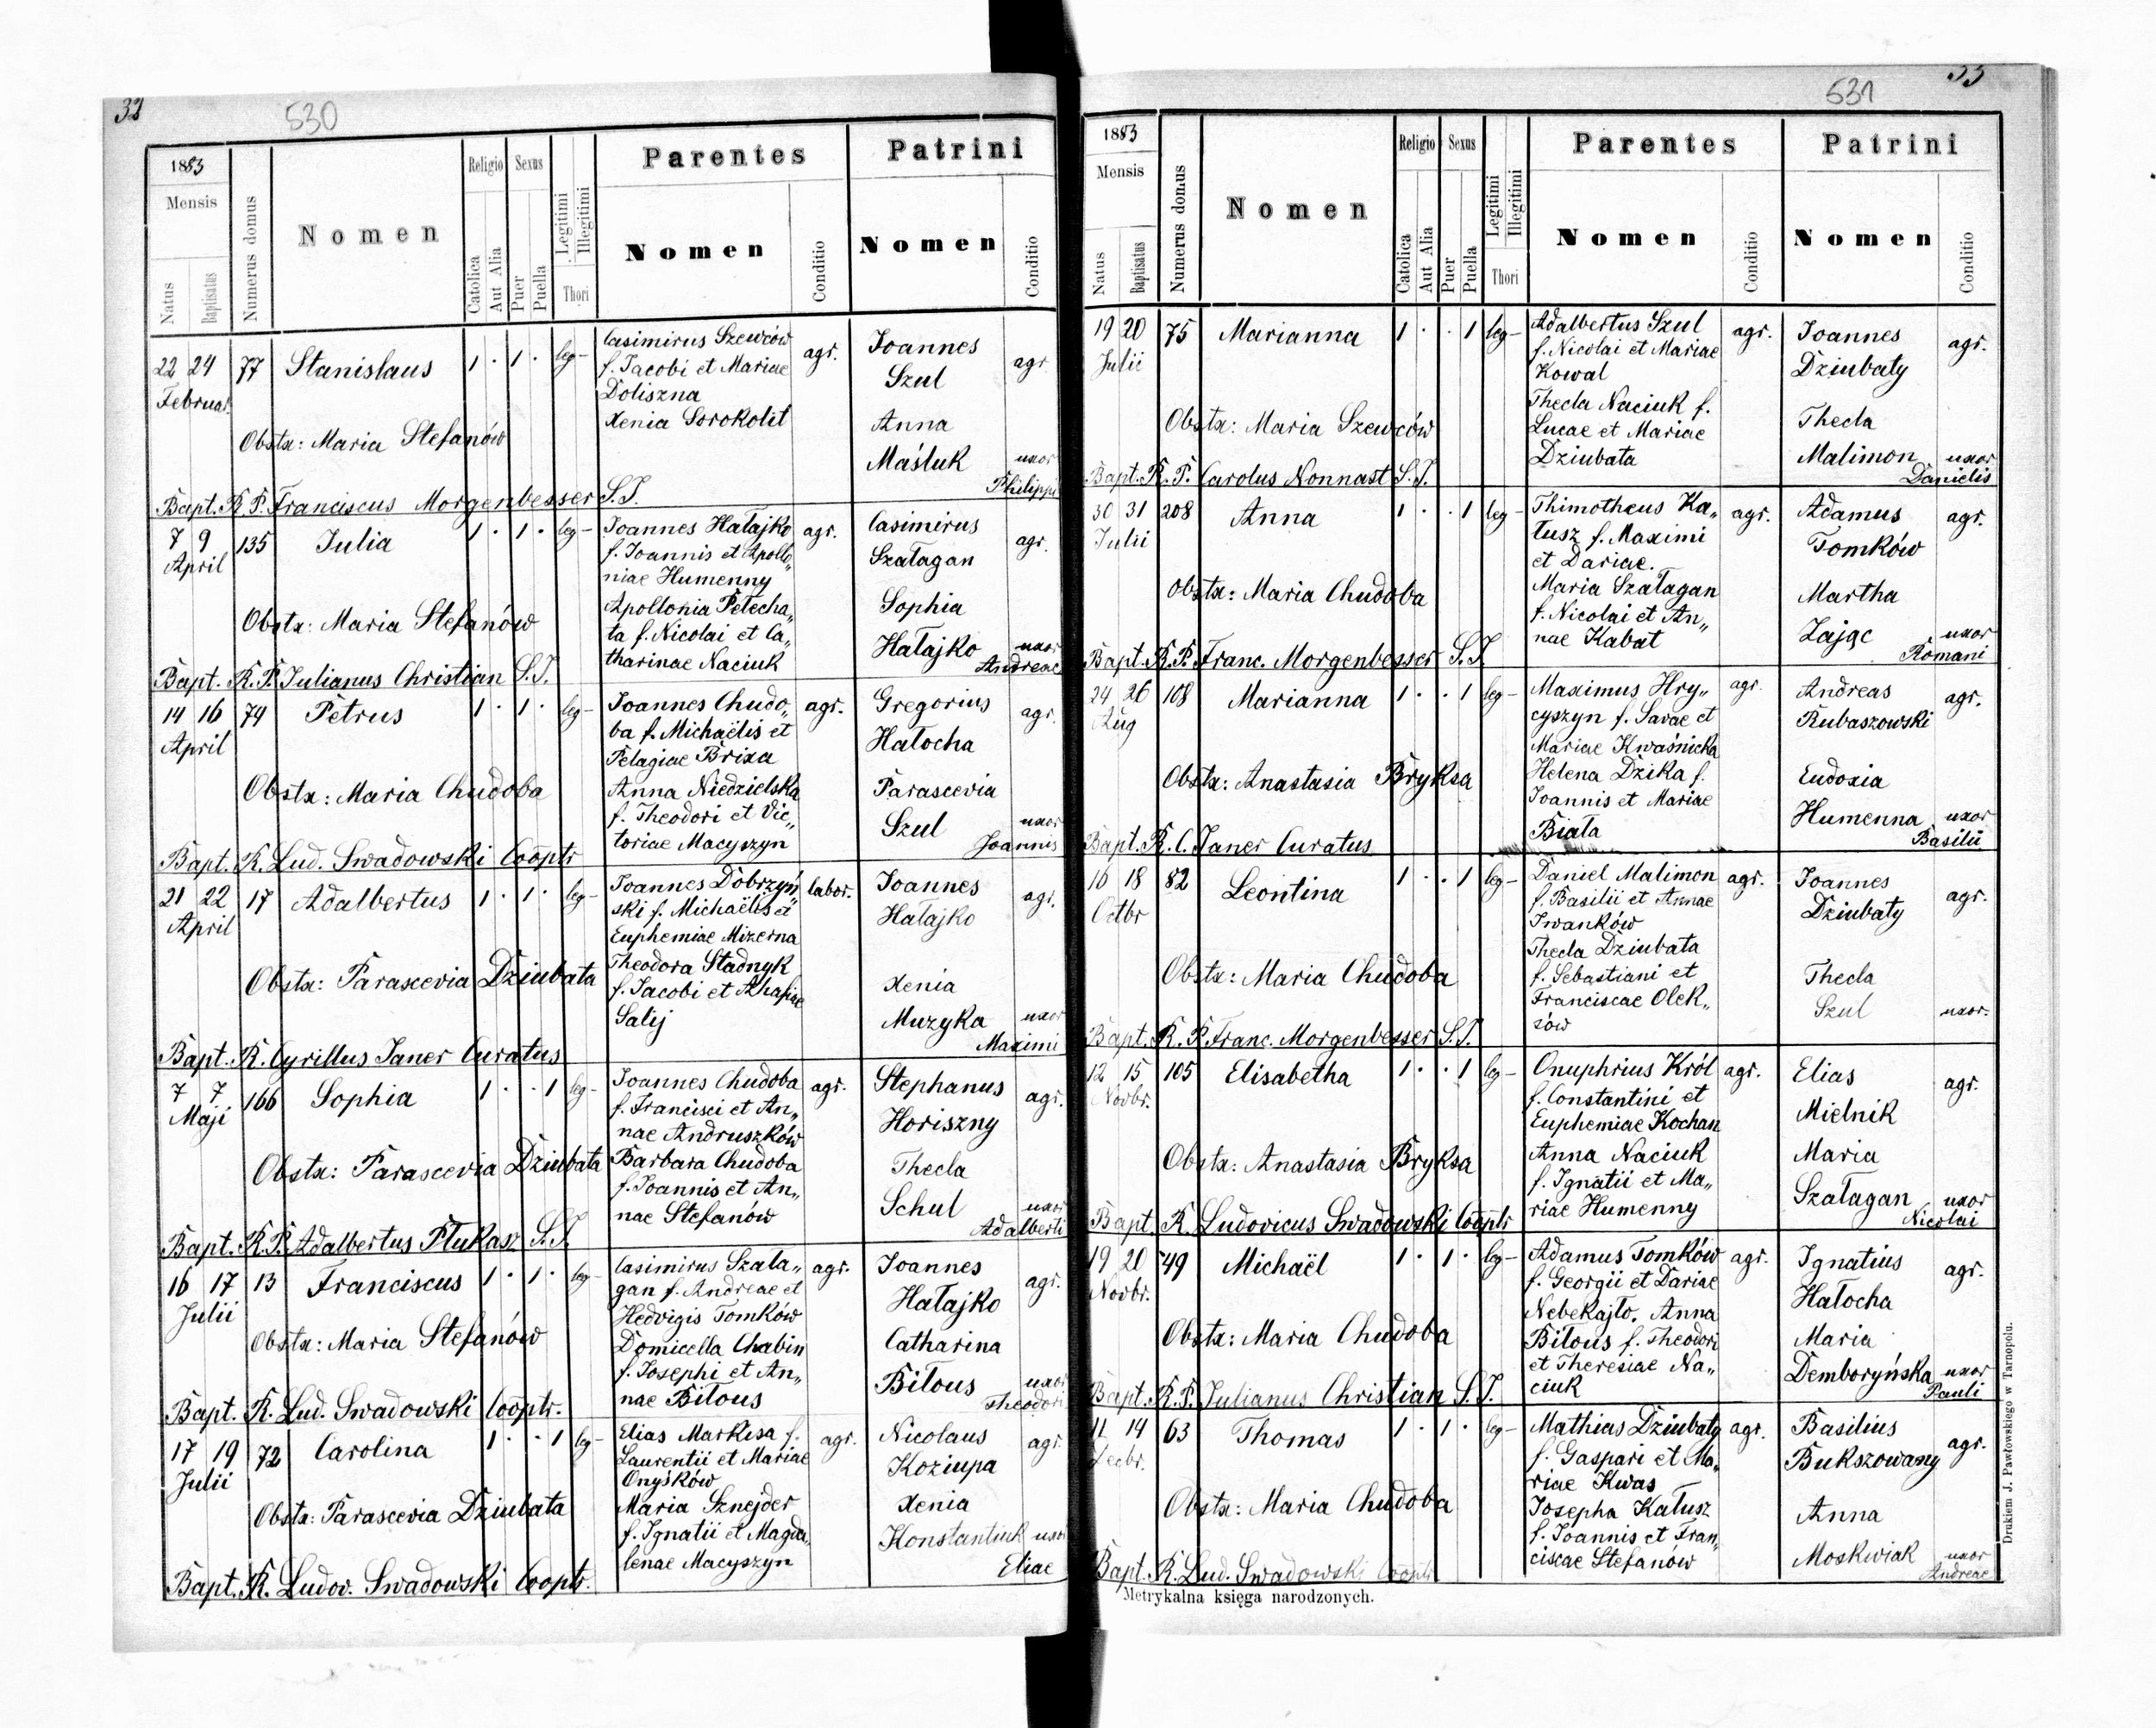 32
530
1883
Mensis
Natus
Baptisatus
Numerus domus
Nomen
Religio
Catolica
Aut Alia
Sexus
Puer
Puella
Legitimi
Illegitimi
Thori
Parentes
Nomen
Conditio
Patrini
Nomen
Conditio
22 24 77 Stanislaus 1 · 1 · leg- Casimirus Szewców agr. Joannes agr
Februar. f. Jacobi et Mariae Szul
Doliszna
Obstx: Maria Stefanów Xenia Sorokolit Anna
Maśluk uxor
Philippi
Bapt. R. P. Franciscus Morgenbesser S.J.
7 9 135 Julia 1 · 1 · leg- Joannes Hałajko agr. Casimirus agr.
April f. Joannis et Apollo„ Szałagan
niae Humenny
Obstx: Maria Stefanów Apollonia Petecha„ Sophia
ta f. Nicolai et Ca„ Hałajko uxor
tharinae Naciuk Andreae
Bapt. R. P. Julianus Christian S.J.
14 16 74 Petrus 1 · 1 · leg- Joannes Chudo„ agr. Gregorius agr.
April ba f. Michaëlis et Hałocha
Pelagiae Brixa
Obstx: Maria Chudoba Anna Niedzielska Parascevia
f. Theodori et Vic„ Szul uxor
toriae Macyszyn Joannis
Bapt. R. Lud. Swadowski Cooptr
21 22 17 Adalbertus 1 · 1 · leg- Joannes Dobrzyń„ labor. Joannes agr.
April ski f. Michaëlis et Hałajko
Euphemiae Mizerna
Obstx: Parascevia Dziubata Theodora Stadnyk Xenia
f. Jacobi et Ahafiae Muzyka uxor
Salij Maximi
Bapt. R. Cyrillus Janer Curatus
7 7 166 Sophia 1 · · 1 leg- Joannes Chudoba agr. Stephanus agr.
Maji f. Francisci et An„ Horiszny
nae Andruszków
Obstx: Parascevia Dziubata Barbara Chudoba Thecla
f. Joannis et An„ Schul uxor
nae Stefanów Adalberti
Bapt. R. P. Adalbertus Płukasz S.J.
16 17 13 Franciscus 1 · 1 · leg- Casimirus Szała„ agr. Joannes agr.
Julii gan f. Andreae et Hałajko
Hedvigis Tomków
Obstx: Maria Stefanów Domicella Chabin Catharina
f. Josephi et An„ Biłous uxor
nae Biłous Theodori
Bapt. R. Lud. Swadowski Cooptr.
17 19 72 Carolina 1 · · 1 leg- Elias Markisa f. agr. Nicolaus agr.
Julii Laurentii et Mariae Koziupa
Onyśków
Obstx: Parascevia Dziubata Maria Sznejder Xenia
f. Ignatii et Magda„ Konstantiuk uxor
lenae Macyszyn Eliae
Bapt. R. Ludov. Swadowski Cooptr.
33
531
1883
Mensis
Natus
Baptisatus
Numerus domus
Nomen
Religio
Catolica
Aut Alia
Sexus
Puer
Puella
Legitimi
Illegitimi
Thori
Parentes
Nomen
Conditio
Patrini
Nomen
Conditio
19 20 75 Marianna 1 · · 1 leg- Adalbertus Szul agr. Joannes agr.
Julii f. Nicolai et Mariae Dziubaty
Kowal
Obstx: Maria Szewców Thecla Naciuk f. Thecla
Lucae et Mariae Malimon uxor
Dziubata Danielis
Bapt. R. P. Carolus Nonnast S.J.
30 31 208 Anna 1 · · 1 leg- Thimotheus Ka„ agr. Adamus agr.
Julii łusz f. Maximi Tomków
et Dariae.
Obstx: Maria Chudoba Maria Szałagan Martha
f. Nicolai et An„ Zając uxor
nae Kabat Romani
Bapt. R. P. Franc. Morgenbesser S.J.
24 26 108 Marianna 1 · · 1 leg- Maximus Hry„ agr. Andreas agr.
Aug cyszyn f. Savae et Rubaszowski
Mariae Kwaśnicka
Obstx: Anastasia Bryksa Helena Dzika f. Eudoxia
Joannis et Mariae Humenna uxor
Biała Basilii
Bapt. R. C. Janer Curatus
16 18 82 Leontina 1 · · 1 leg- Daniel Malimon agr. Joannes agr.
Octbr f. Basilii et Annae Dziubaty
Iwanków
Obstx: Maria Chudoba Thecla Dziubata Thecla
f. Sebastiani et Szul uxor-
Franciscae Olek„
sów
Bapt. R. P. Franc. Morgenbesser S.J.
12 15 105 Elisabetha 1 · · 1 leg- Onuphrius Król agr. Elias agr.
Novbr. f. Constantini et Mielnik
Euphemiae Kochan
Obstx: Anastasia Bryksa Anna Naciuk Maria
f. Ignatii et Ma„ Szałagan uxor
riae Humenny Nicolai
Bapt. R. Ludovicus Swadowski Cooptr
19 20 49 Michaël 1 · 1 · leg- Adamus Tomków agr. Ignatius agr.
Novbr. f. Georgii et Dariae Hałocha
Nebekajło. Anna
Obstx: Maria Chudoba Biłous f. Theodori Maria
et Theresiae Na„ Demboryńska uxor
ciuk Pauli
Bapt. R. P. Julianus Christian S.J.
11 14 63 Thomas 1 · 1 · leg- Mathias Dziubaty agr. Basilius agr.
Decbr. f. Gaspari et Ma„ Bukszowany
riae Kwas
Obstx: Maria Chudoba Josepha Kałusz Anna
f. Joannis et Fran„ Moskwiak uxor
ciscae Stefanów Andreae
Bapt. R. Lud. Swadowski Cooptr
Metrykalna księga narodzonych.
Drukiem J. Pawłowskiego w Tarnopolu.